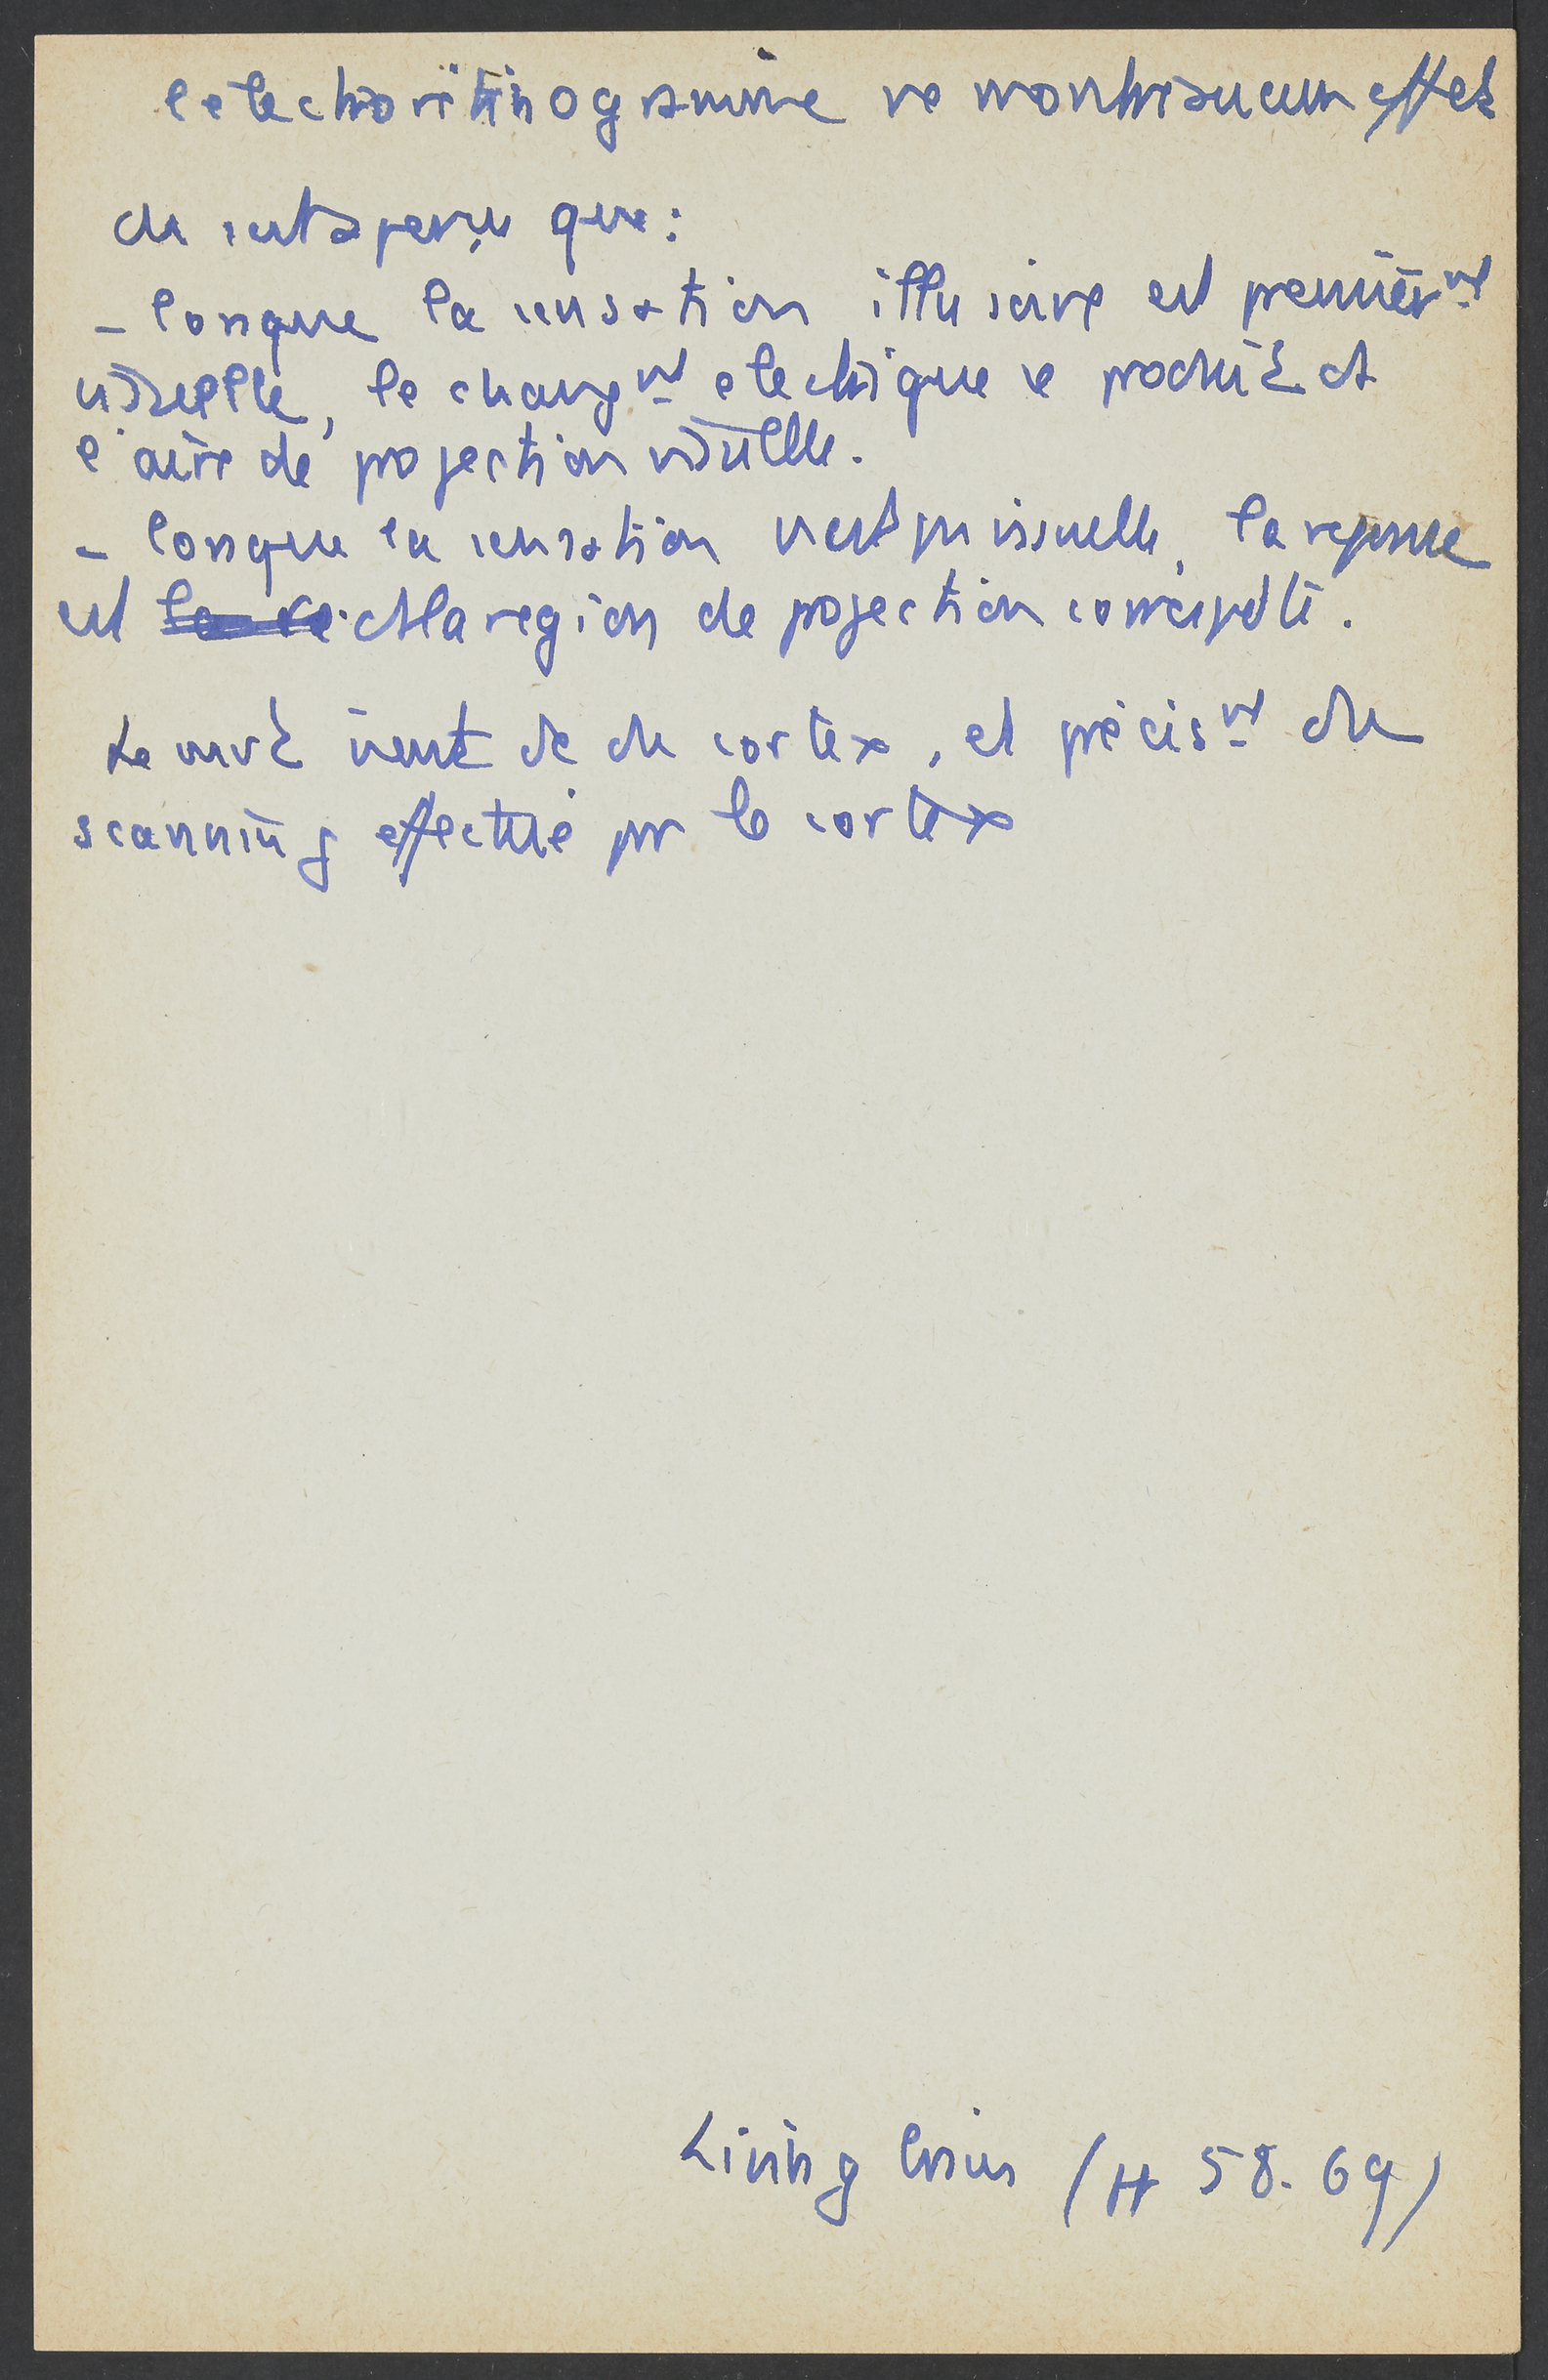 l'electroretinogramme ne montre aucun effet
on s'est aperçu que :
- lorsque la sensation illusoire est premièrmt
visuelle, le changmt electrique se produit ds
l'aire de projection visuelle.
- lorsque la sensation n'est pas visuelle, la reponse
est la re. ds la region de projection correspdte.
Le mvt vient dc du cortex, et précismt du
scanning effectué pr le cortex
Living brain (pp 58-69)